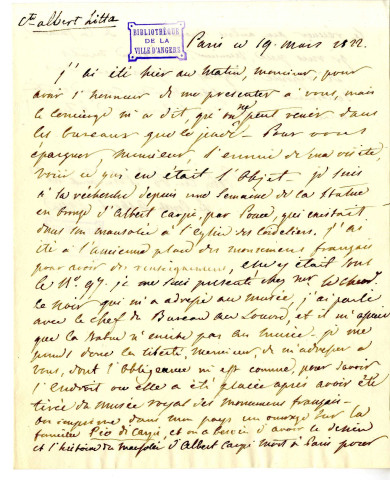 Cte albert Litta
BIBLIOTHÈQUE
DE LA
VILLE D'ANGERS
Paris ce 19. mars 1822.
J'ai été hier au Matin, monsieur, pour
avoir l'honneur de me presenter à vous, mais
le concierge m'a dit, qu'on ne peut venir dans
les bureaux que le jeudi - Pour vous
épargner, Monsieur, l'ennui de ma visite
voici ce qui en était l'Objet - je suis
à la recherche depuis une semaine de la Statue
en bronze d'Albert Carpi, par Ponce, qui existait
dans son mausolée à l'Eglise des Cordeliers. J'ai
été à l'ancienne place des monuments français
pour avoir des renseignemens, elle y était sous
le No. 97. je me suis presenté chez Mr. le Chevr.
le Noir qui m'a adressé au musée, j'ai parlé
avec le chef de Bureau au Louvre, et il m'assure
que la Statue n'existe pas au musée - je me
prends donc la liberté, monsieur, de m'adresser à
vous, dont l'Obligeance m'est connue, pour savoir
l'endroit où elle a été placée après avoir été
tirée du musée royal des monumens français -
On imprime, dans mon pays un ouvrage sur la
famille Pio di Carpi, et on a besoin d'avoir le dessin
et l'histoire du mausolée d'Albert Carpi mort à Paris pour